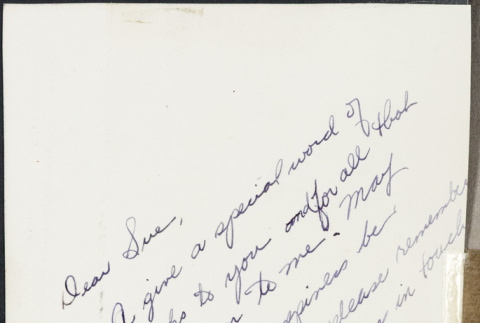 Dear Sue,
I give a special word of
to you and for all that
to me. May
be
please remember
in touch